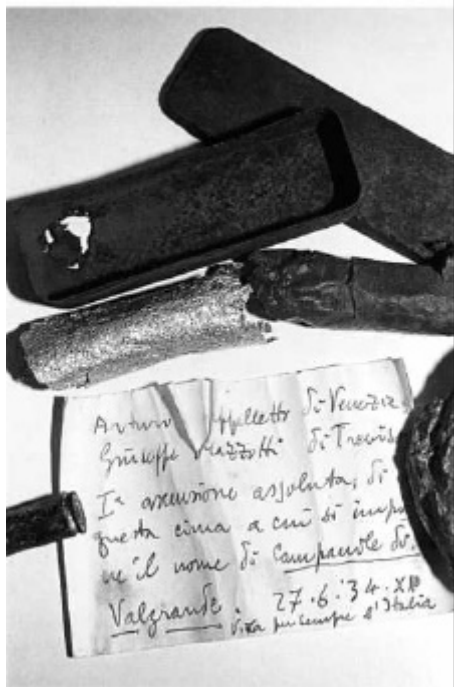 Arturo di Venezia
Giuseppe Mazzotti di Trevis
Iª ascensione assoluta, di
questa cima a cui si impo
ne il nome di Campanile di
Valgrande. 27.6.34.XII
Viva per sempre l'Italia